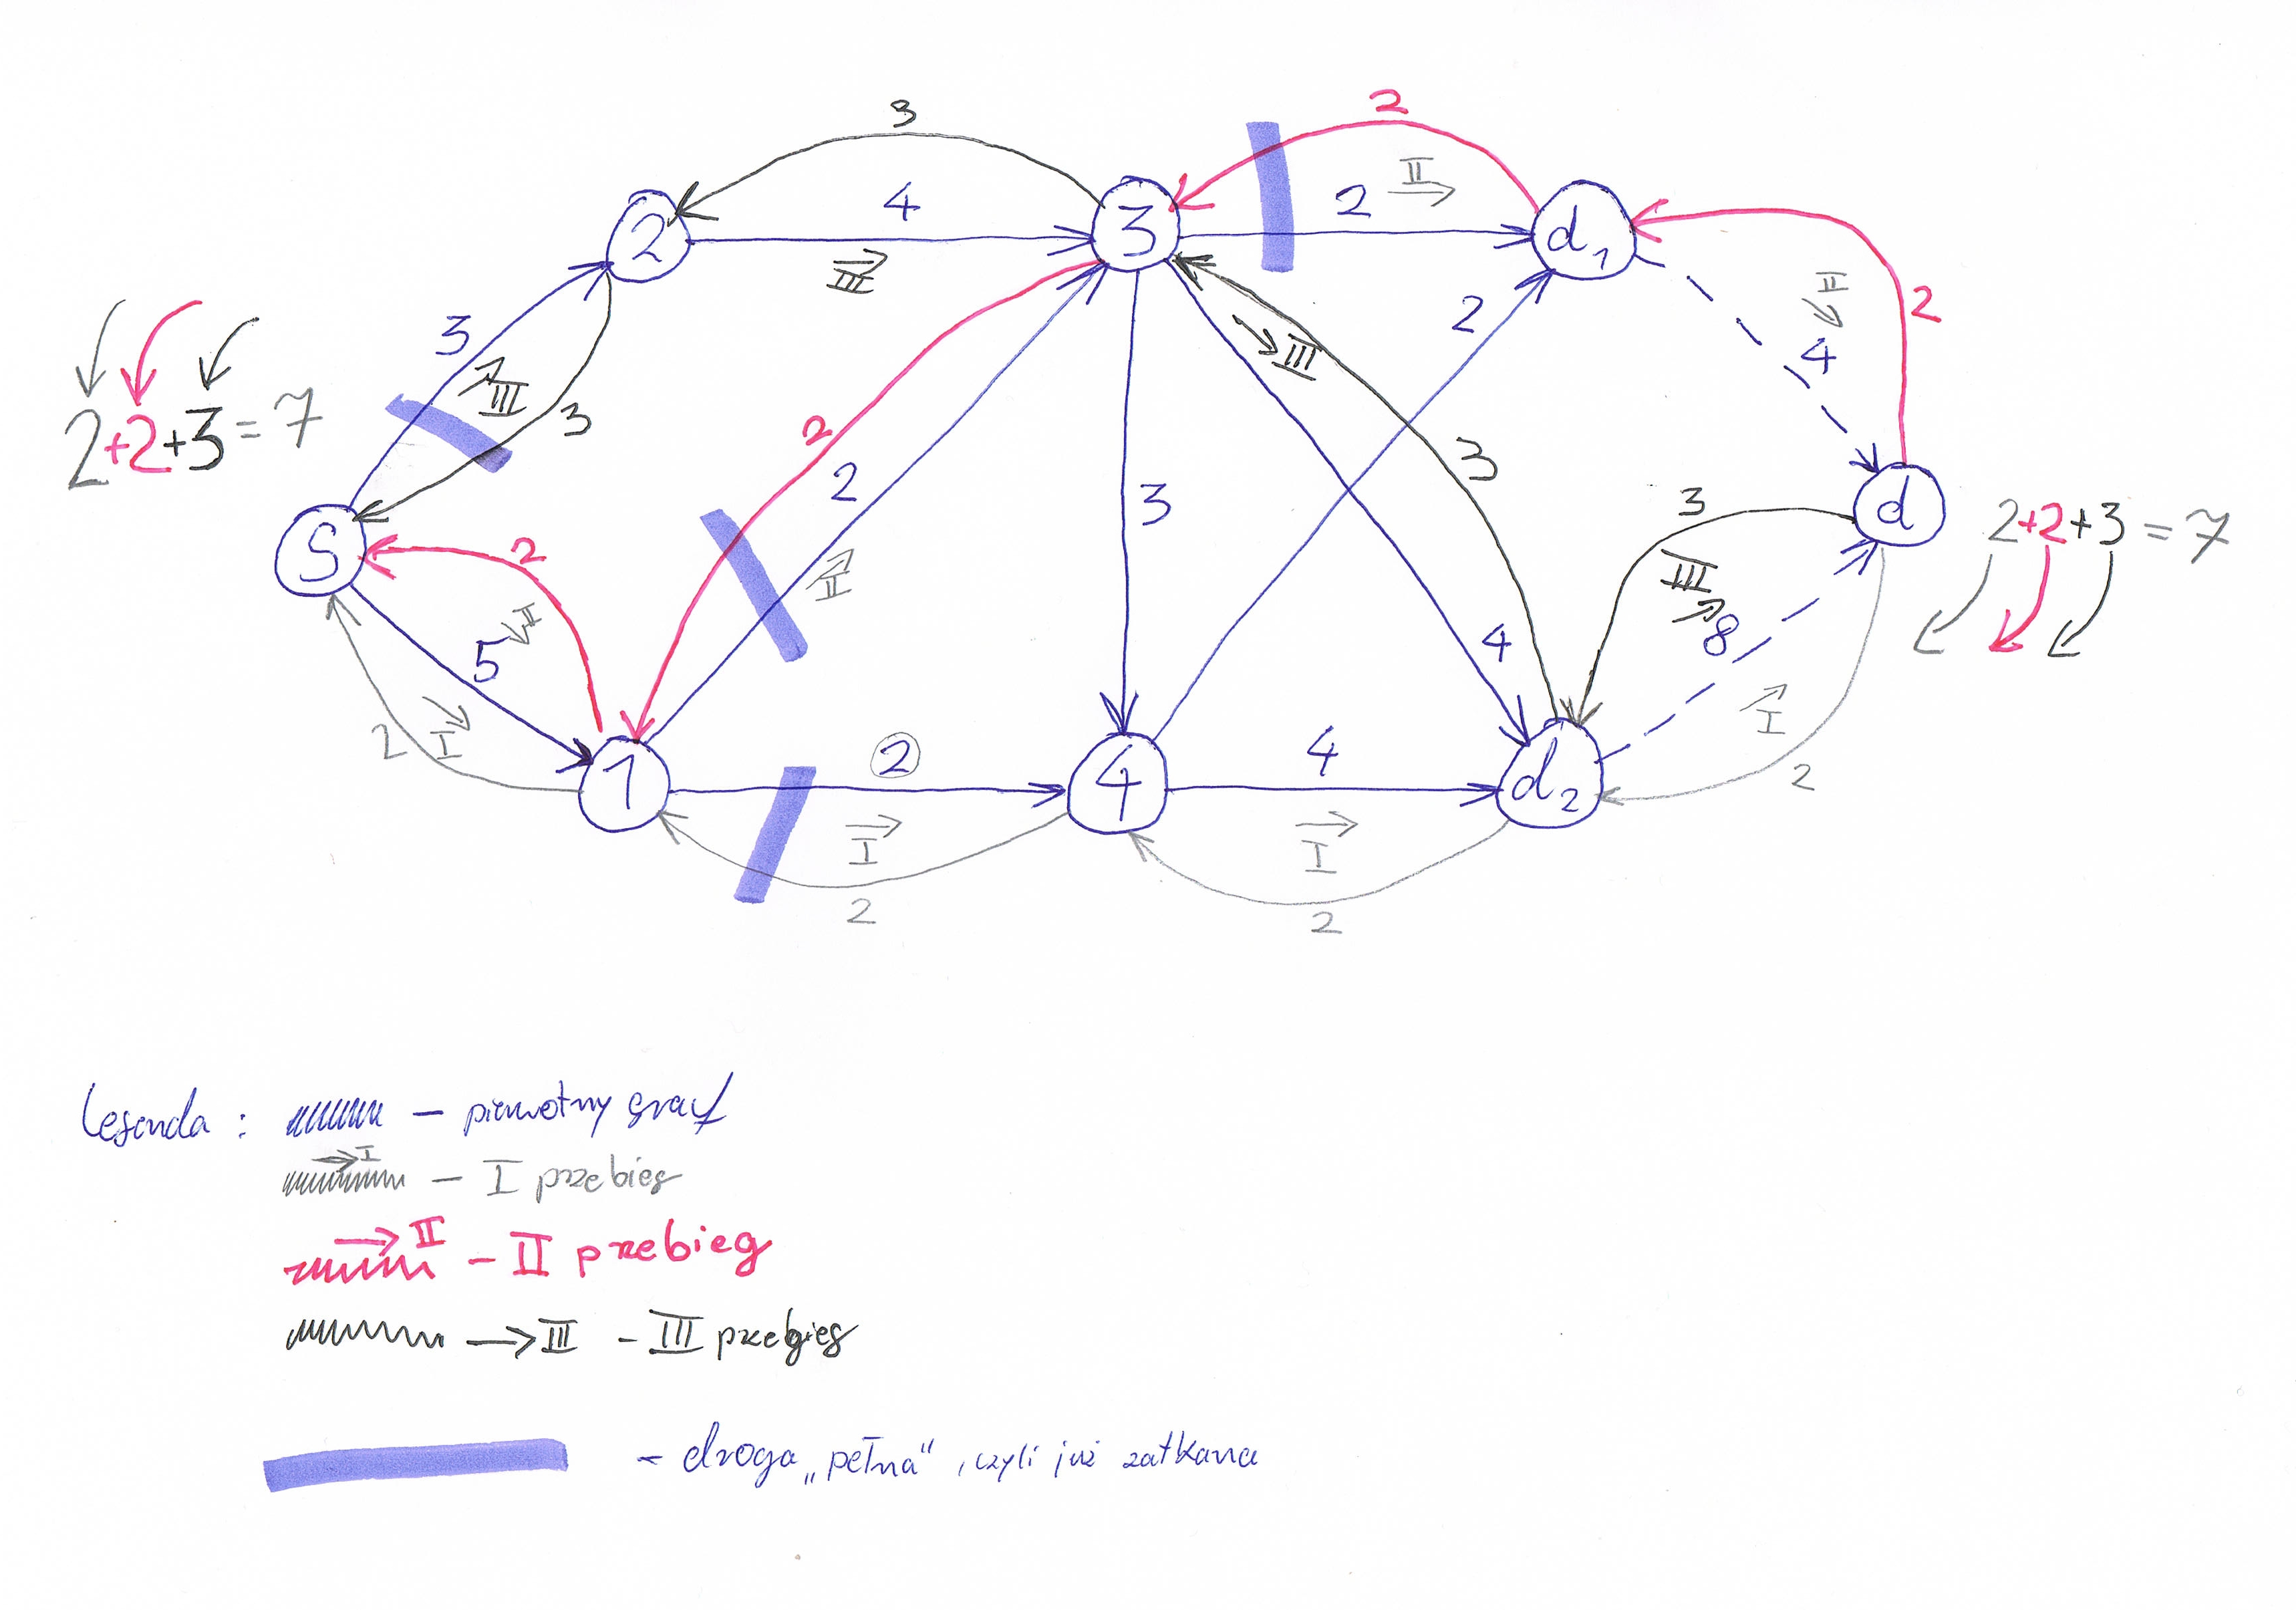 3
2
II
4
2
2
3
d₁
III
2
II
3
III
4
2
2+2+3=7
III
3
2
2
3
3
3
d
2+2+3=7
S
2
II
III
5
II
4
8
2
I
2
4
I
1
4
d₂
2
I
I
2
2
Legenda : – pierwotny graf
I – I przebieg
II – II przebieg
III – III przebieg
– droga „pełna", czyli już zatkana